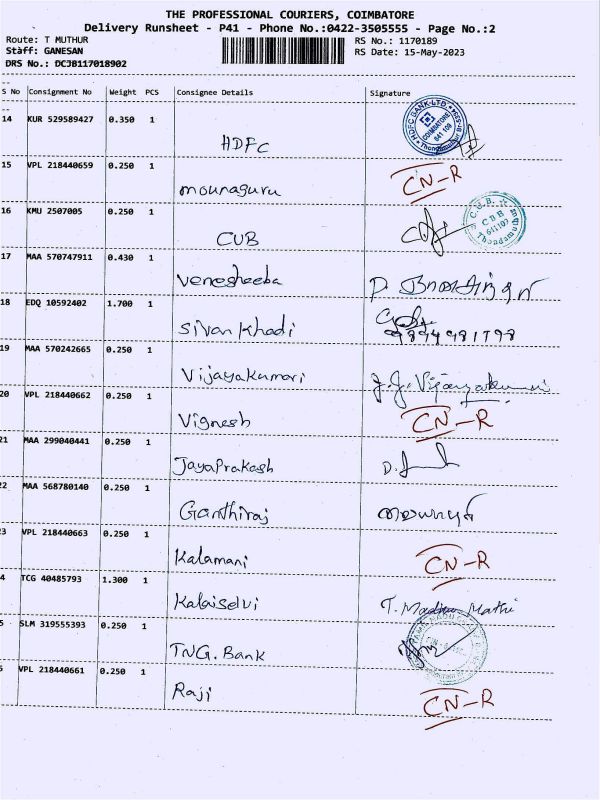 THE PROFESSIONAL COURIERS, COIMBATORE
Delivery Runsheet - P41 - Phone No.:0422-3505555 - Page No.:2
Route: T MUTHUR RS No.: 1170189
Staff: GANESAN RS Date: 15-May-2023
DRS No.: DCJB117018902
S No Consignment No Weight PCS Consignee Details Signature
14 KUR 529589427 0.350 1 HDFC HDFC BANK LTD COIMBATORE 641 109
15 VPL 218440659 0.250 1 mounaguru CN-R
16 KMU 2507005 0.250 1 CUB C.U.B. CBB
17 MAA 570747911 0.430 1 Venesheeba
18 EDQ 10592402 1.700 1 Sivan Khadi 9894981798
19 MAA 570242665 0.250 1 Vijayakumari J.J. Vijayakumari
20 VPL 218440662 0.250 1 Vignesh CN-R
21 MAA 299040441 0.250 1 JayaPrakash
22 MAA 568780140 0.250 1 Ganthiraj
3 VPL 218440663 0.250 1 Kalamani CN-R
4 TCG 40485793 1.300 1 Kalaiselvi T. Madhu Mathi
5 SLM 319555393 0.250 1 TNG. Bank
VPL 218440661 0.250 1 Raji CN-R